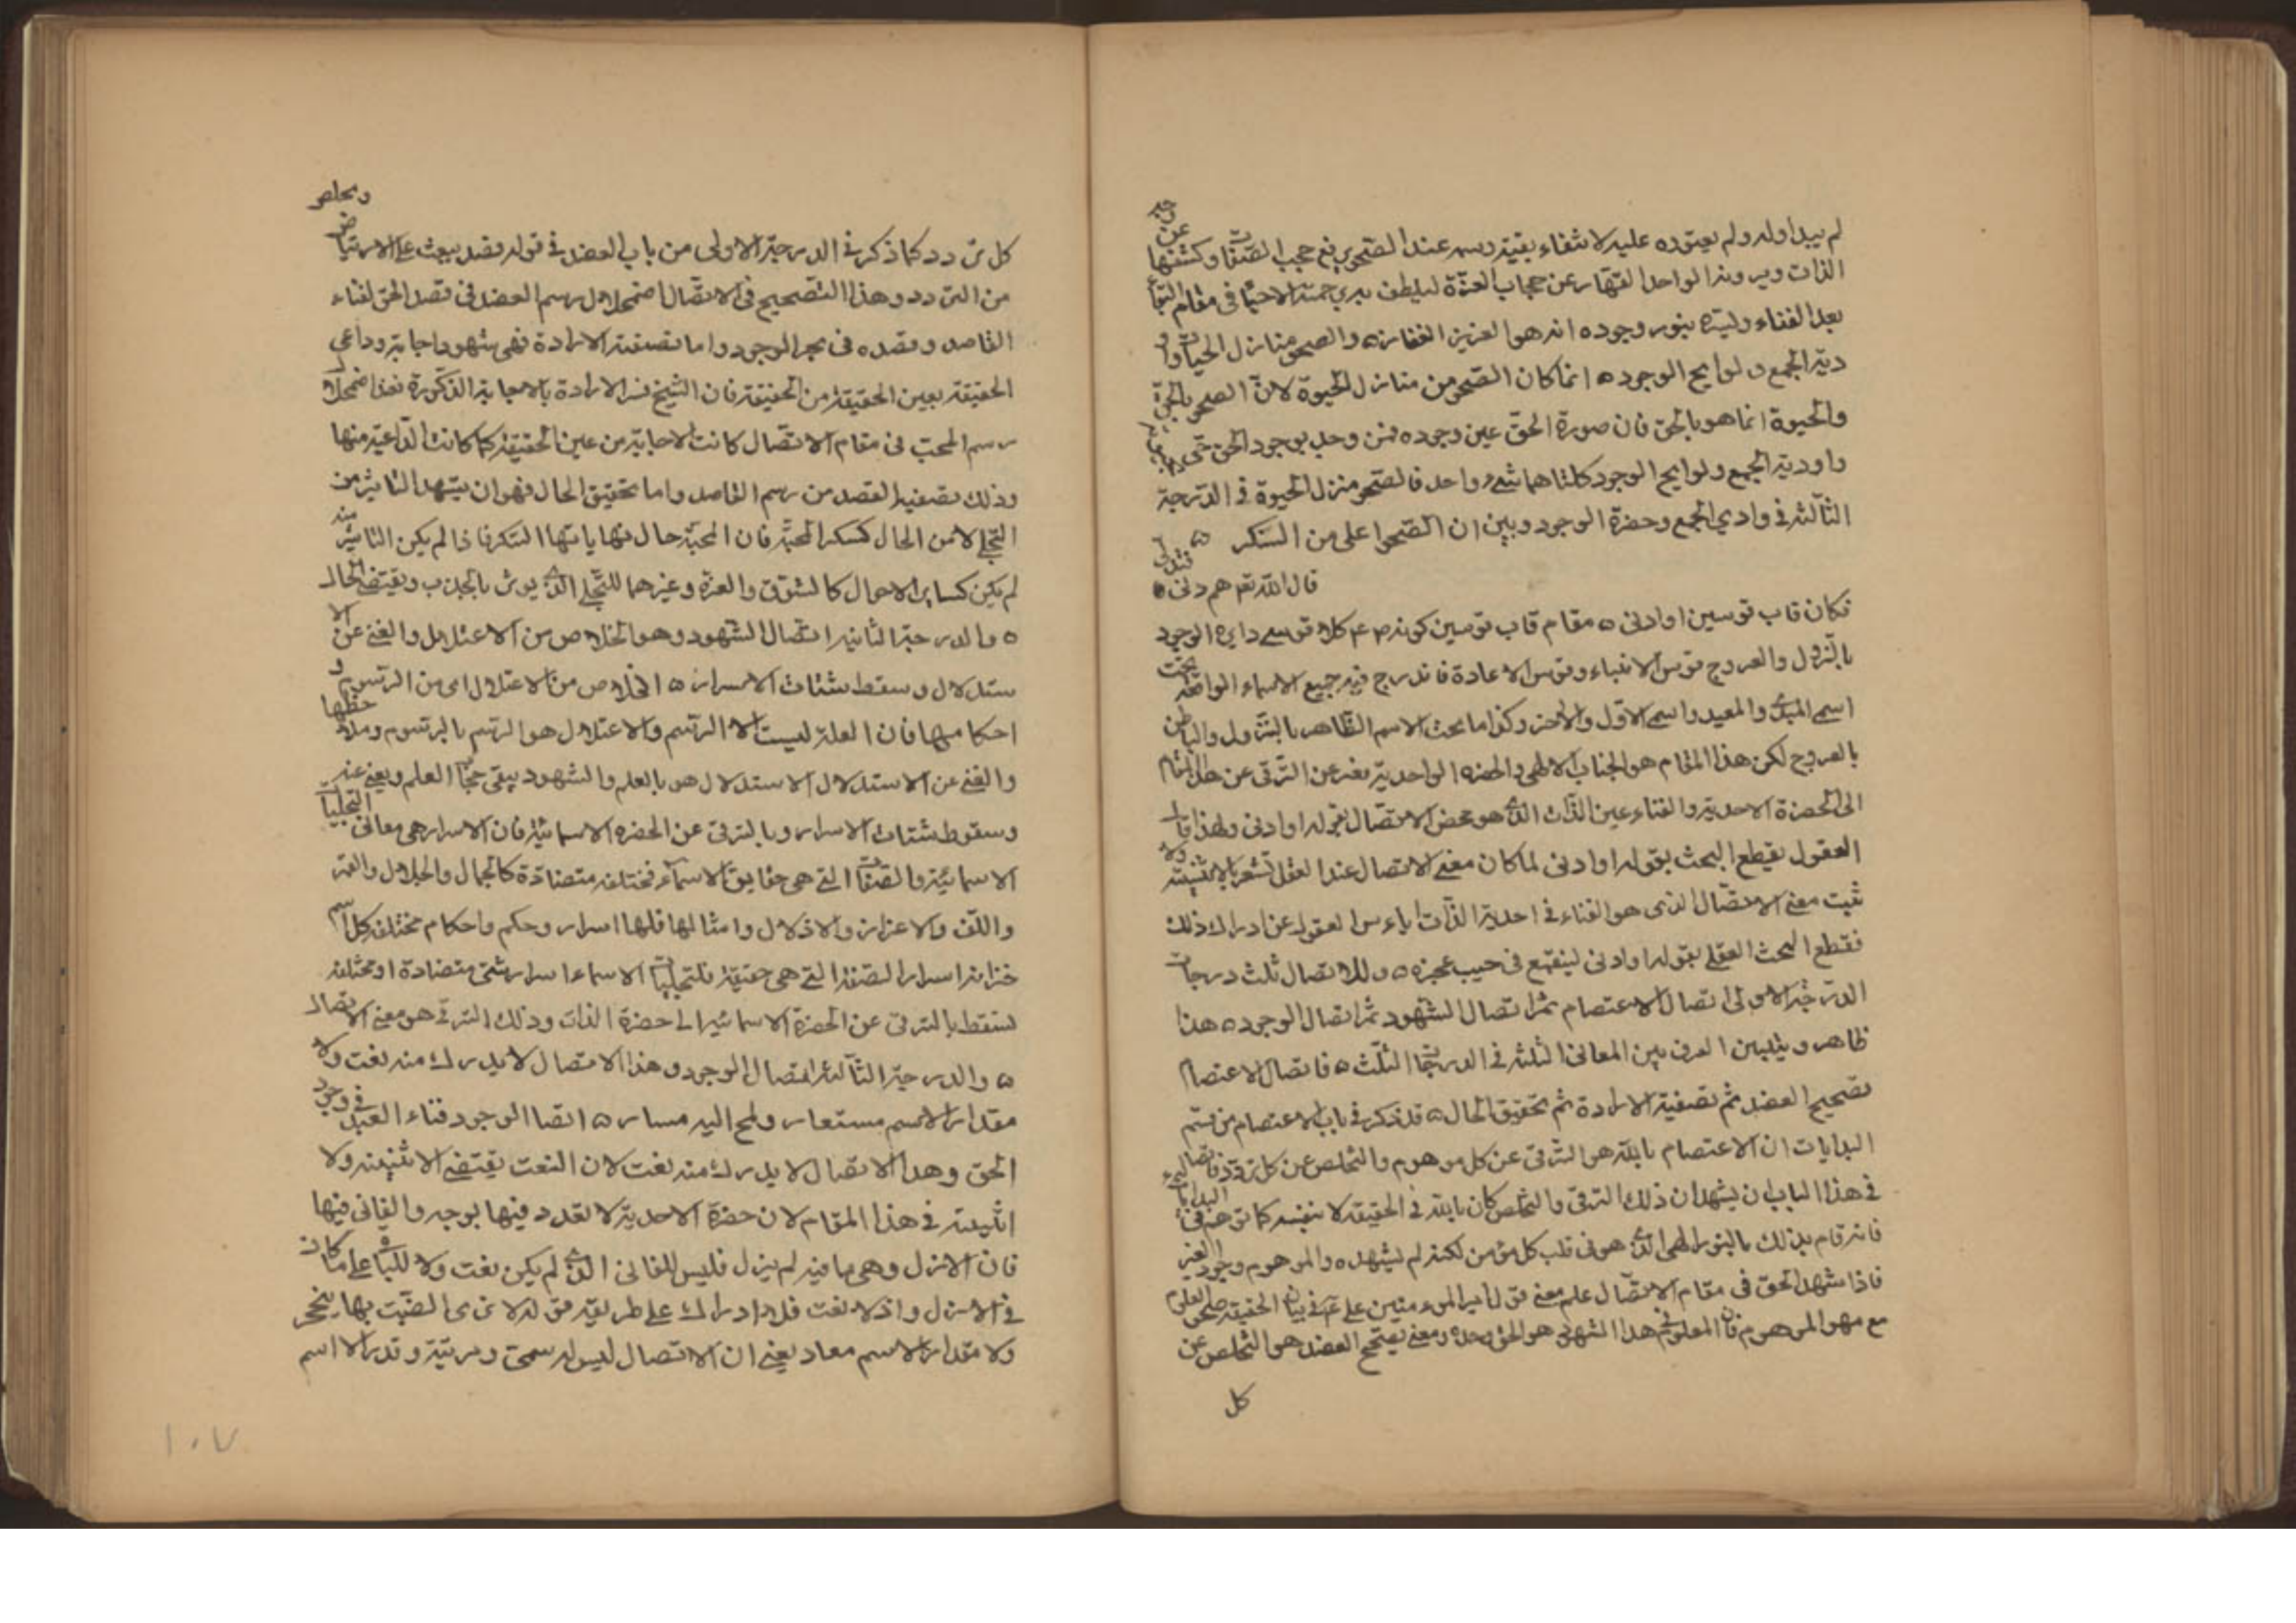 لم يبد اوله ولم يعوده عليه لانتفاء بقية رسمه عند الصحو يرفع حجب الصفات وكشفها عن
الذات وبروز الواحد القهار عن حجاب العزة لبلطف يبري جمته الاحيا في مقام البقا
بعد الفناء وليتره بنور وجوده انه هو العزيز الغفار ه والصحو منازل الحيات واو
دية الجمع ولوايح الوجود ه انما كان الصحو من منازل الحيوة لان الصحو بالحق
والحيوة انما هو بالحق فان صورة الحق عين وجوده فمن وجد بوجود الحق حتى
واودية الجمع ولوايح الوجود كلتاهما شيء واحد فالصحو منزل الحيوة في الدرجة
الثالثة في وادي الجمع وحضرة الوجود وبين ان الصحو اعلى من السكر ه
قال الله تعه ثم دنى فتدلى
فكان قاب قوسين او ادنى ه مقام قاب قوسين كونه كلا قوسي دايرة الوجود
بالنزول والعروج قوس الابتداء وقوس الاعادة فاندرج فيه جميع الاسماء الواقعة تحت
اسمي المبدئ والمعيد واسمي الاول والاخر وكذا ما تحت الاسم الظاهر بالنزول والباطن
بالعروج لكن هذا المقام هو الجناب الالهي والحضرة الواحدية فعبر عن الترقي عن هذا المقام
الى الحضرة الاحدية والفناء عين الذات الذي هو محض الاتصال بقوله او ادنى ولهذا قال
العقول بقطع البحث بقوله او ادنى لما كان معنى الاتصال عند العقل تشعر بالاثنينية ولا
ثبت معنى الاتصال الذي هو الفناء في احدية الذات اياس العقول عن ادراك ذلك
فقطع البحث العقلي بقوله او ادنى لينقمع في حبيب عجزه ه وللاتصال ثلث درجات
الدرجة الاولى اتصال الاعتصام ثم اتصال الشهود ثم اتصال الوجود ه هذا
ظاهر وبتبين الفرق بين المعاني الثلثة في الدرجات الثلث ه فاتصال الاعتصام
تصحيح القصد ثم تصفية الارادة ثم تحقيق الحال ه قد ذكر في باب الاعتصام من قسم
البدايات ان الاعتصام بالله هو الترقي عن كل موهوم والتخلص عن كل تردد فاتصاله
في هذا الباب ان يشهد ان ذلك الترقي والتخلص كان بالله في الحقيقة لا بنفسه كما توهم في البدايات
فانه قام بذلك بالنور الالهي الذي هو في قلب كل مؤمن لكنه لم يشهده والموهوم وجود الغير
فاذا شهد الحق في مقام الاتصال علم معنى قول امير المؤمنين علي في بيان الحقيقة صحو المعلوم
مع محو الموهوم فان المعلوم في هذا الشهود هو الحق وحده ومعنى تصحيح القصد هو التخلص عن
كل
ويخلص
كل تردد كما ذكر في الدرجة الاولى من باب القصد في قوله قصد يبعث على الارتياض
من التردد وهذا التصحيح في الاتصال اضمحلال رسم القصد في قصد الحق لفناء
القاصد وقصده في بحر الوجود واما تصفية الارادة فهي شهود اجابة دواعي
الحقيقة بعين الحقيقة من الحقيقة فان الشيخ فسر الارادة بالاجابة المذكورة فعند اضمحلال
رسم المحب في مقام الاتصال كانت الاجابة من عين الحقيقة كما كانت الداعية منها
وذلك تصفية القصد من رسم القاصد واما تحقيق الحال فهو ان يشهد التاثير من
التجلي لا من الحال كسكر المحبة فان المحبة حال نهاياتها السكر فاذا لم يكن التاثير منه
لم يكن كساير الاحوال كالشوق والعزة وغيرهما للتجلي الذي يورث بالجذب ويقتضي الحال
ه والدرجة الثانية اتصال الشهود وهو الخلاص من الاعتلال والغنى عن الا
ستدلال وسقوط شتات الاسرار ه الخلاص من الاعتلال اى من الرسوم و
احكامها فان العلة ليست الا الرسم والاعتلال هو الرسم بالرسوم وملاحظتها
والغنى عن الاستدلال الاستدلال هو بالعلم والشهود يبقي حجاب العلم ويغني عنه
وسقوط شتات الاسرار وبالترقي عن الحضرة الاسمائية فان الاسرار هي معاني التجليات
الاسمائية والصفات التي هي حقايق الاسماء مختلفة متضادة كالجمال والجلال والقهر
واللطف والاعزاز والاذلال وامثالها فلها اسرار وحكم واحكام مختلفة كل اسم
خزانة اسرار الصفة التي هي حقيقة فلتجليات الاسماء اسرار شتى متضادة او مختلفة
تسقط بالترقي عن الحضرة الاسمائية الى حضرة الذات وذلك الترقي هو معنى الاتصال
ه والدرجة الثالثة اتصال الوجود وهذا الاتصال لا يدرك منه نعت ولا
مقدار الا اسم مستعار ولمح اليه مسار ه اتصال الوجود فناء العبد في وجود
الحق وهذا الاتصال لا يدرك منه نعت لان النعت يقتضي الاثنينية ولا
اثنينية في هذا المقام لان حضرة الاحدية لا تعدد فيها بوجه والفاني فيها
فان الازل وهي ما فيه لم يزل فليس للفاني الذي لم يكن نعت ولا للباقي على ما كان
في الازل واذ لا نعت فلا ادراك على طريقة قوله لا ترى الضب بها ينجحر
ولا مقدار الا اسم معاد يعني ان الاتصال ليس له سمى ومرتبة وقدر الا اسم
١٠٧